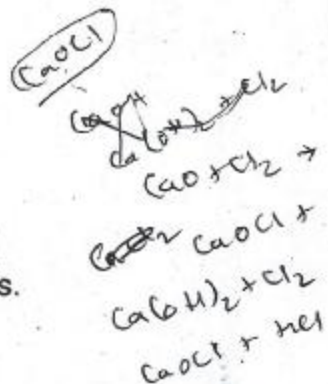 CaOCl
Ca(OH)2 + Cl2
CaO + Cl2 →
CaOCl +
s.
Ca(OH)2 + Cl2
CaOCl + HCl